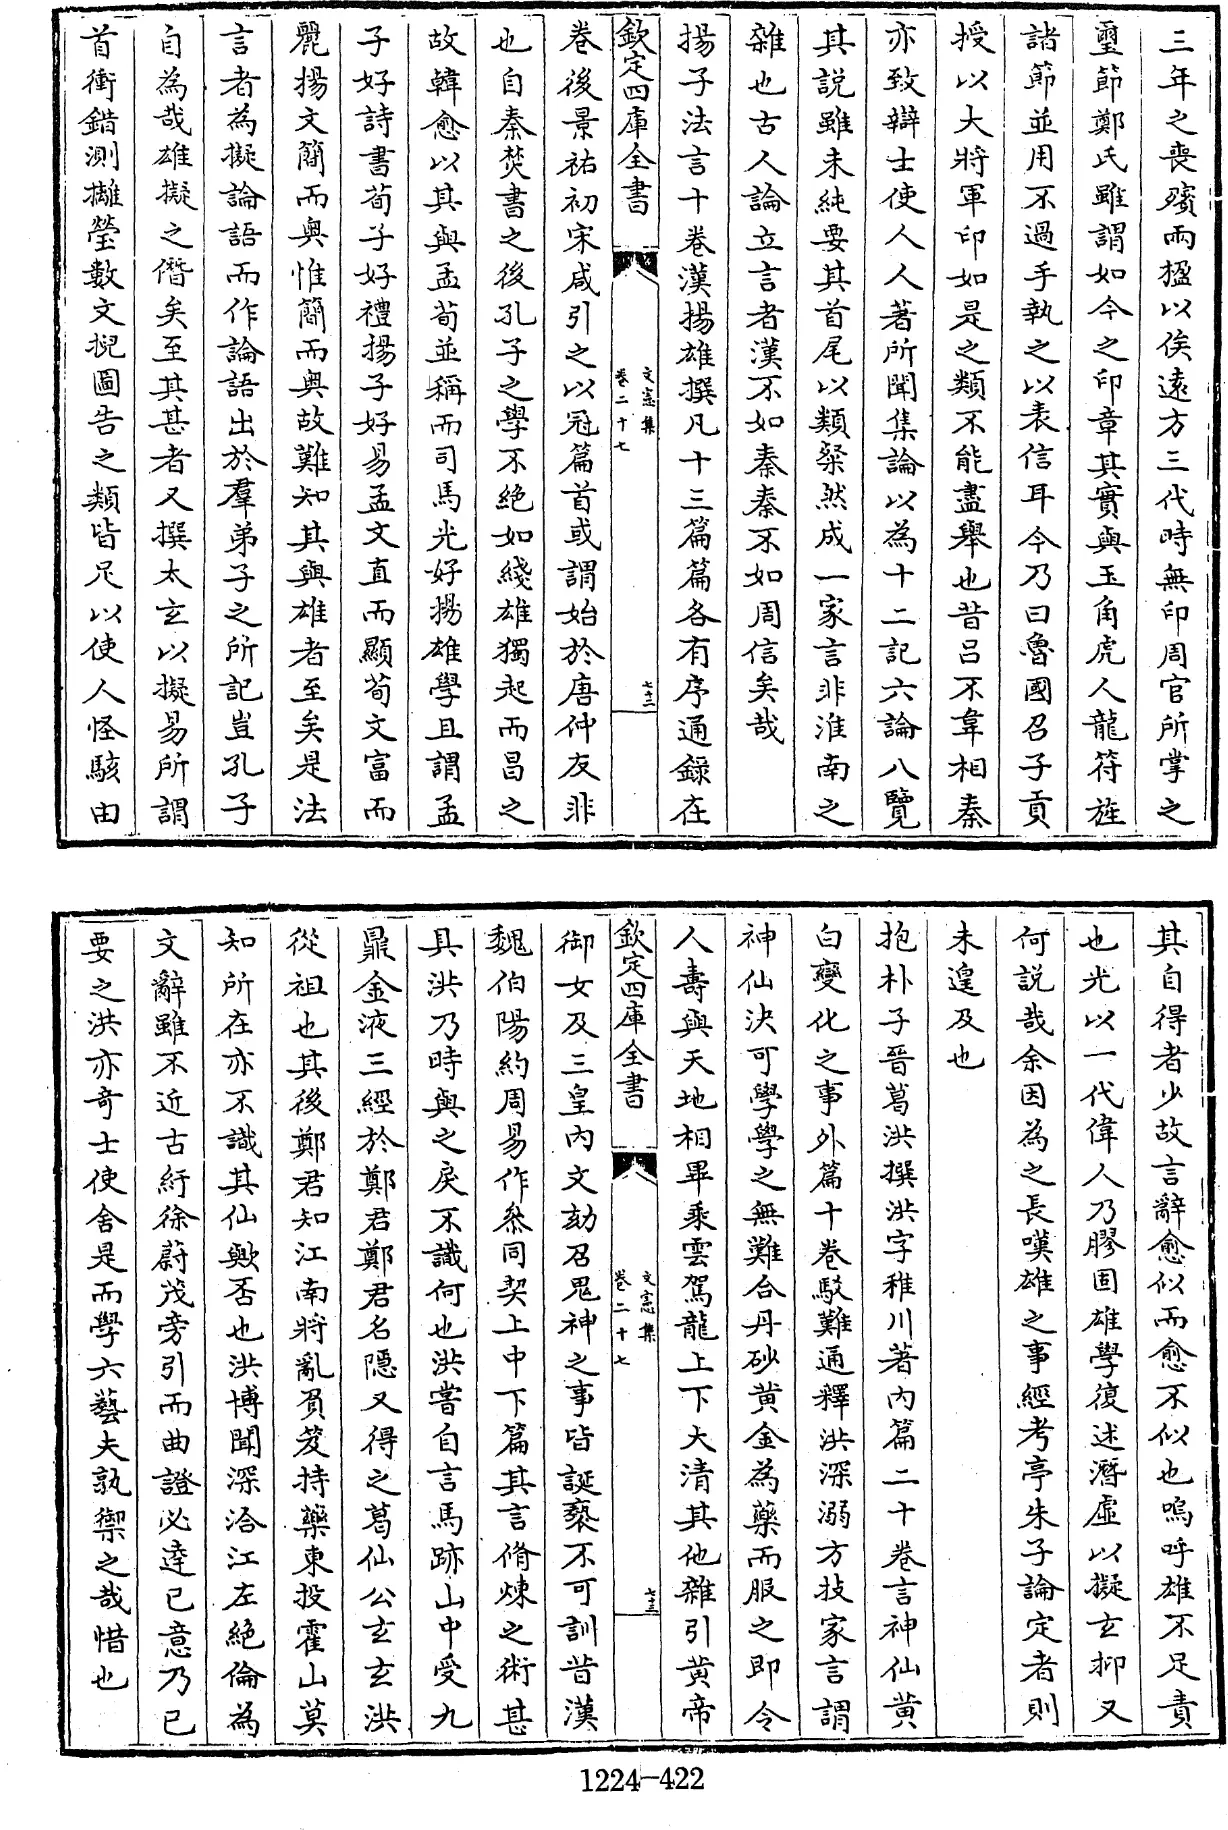 三年之喪殯兩楹以俟遠方三代時無印周官所掌之
璽節鄭氏雖謂如今之印章其實與玉角虎人龍符旌
諸節並用不過手執之以表信耳今乃曰魯國召子貢
授以大將軍印如是之類不能盡舉也昔呂不韋相秦
亦致辯士使人人著所聞集論以為十二記六論八覽
其說雖未純要其首尾以類粲然成一家言非淮南之
雜也古人論立言者漢不如秦秦不如周信矣哉
揚子法言十卷漢揚雄撰凡十三篇篇各有序通錄在
欽定四庫全書
文憲集
卷二十七
卷後景祐初宋咸引之以冠篇首或謂始於唐仲友非
也自秦焚書之後孔子之學不絶如綫雄獨起而昌之
故韓愈以其與孟荀並稱而司馬光好揚雄學且謂孟
子好詩書荀子好禮揚子好易孟文直而顯荀文富而
麗揚文簡而奥惟簡而奥故難知其與雄者至矣是法
言者為擬論語而作論語出於羣弟子之所記豈孔子
自為哉雄擬之僭矣至其甚者又撰太玄以擬易所謂
首衝錯測攡瑩數文掜圖告之類皆足以使人怪駭由
其自得者少故言辭愈似而愈不似也嗚呼雄不足責
也光以一代偉人乃膠固雄學復述潛虛以擬玄抑又
何說哉余因為之長嘆雄之事經考亭朱子論定者則
未遑及也
抱朴子晉葛洪撰洪字稚川著內篇二十卷言神仙黃
白變化之事外篇十卷駁難通釋洪深溺方技家言謂
神仙決可學學之無難合丹砂黃金為藥而服之即令
人壽與天地相畢乘雲駕龍上下大清其他雜引黃帝
欽定四庫全書
文憲集
卷二十七
七十三
御女及三皇內文劾召鬼神之事皆誕褻不可訓昔漢
魏伯陽約周易作叅同契上中下篇其言脩煉之術甚
具洪乃時與之戾不識何也洪嘗自言馬跡山中受九
鼎金液三經於鄭君鄭君名隱又得之葛仙公玄玄洪
從祖也其後鄭君知江南將亂負笈持藥東投霍山莫
知所在亦不識其仙歟否也洪博聞深洽江左絶倫為
文辭雖不近古紆徐蔚茂旁引而曲證必達已意乃已
要之洪亦奇士使舍是而學六藝夫孰禦之哉惜也
1224-422